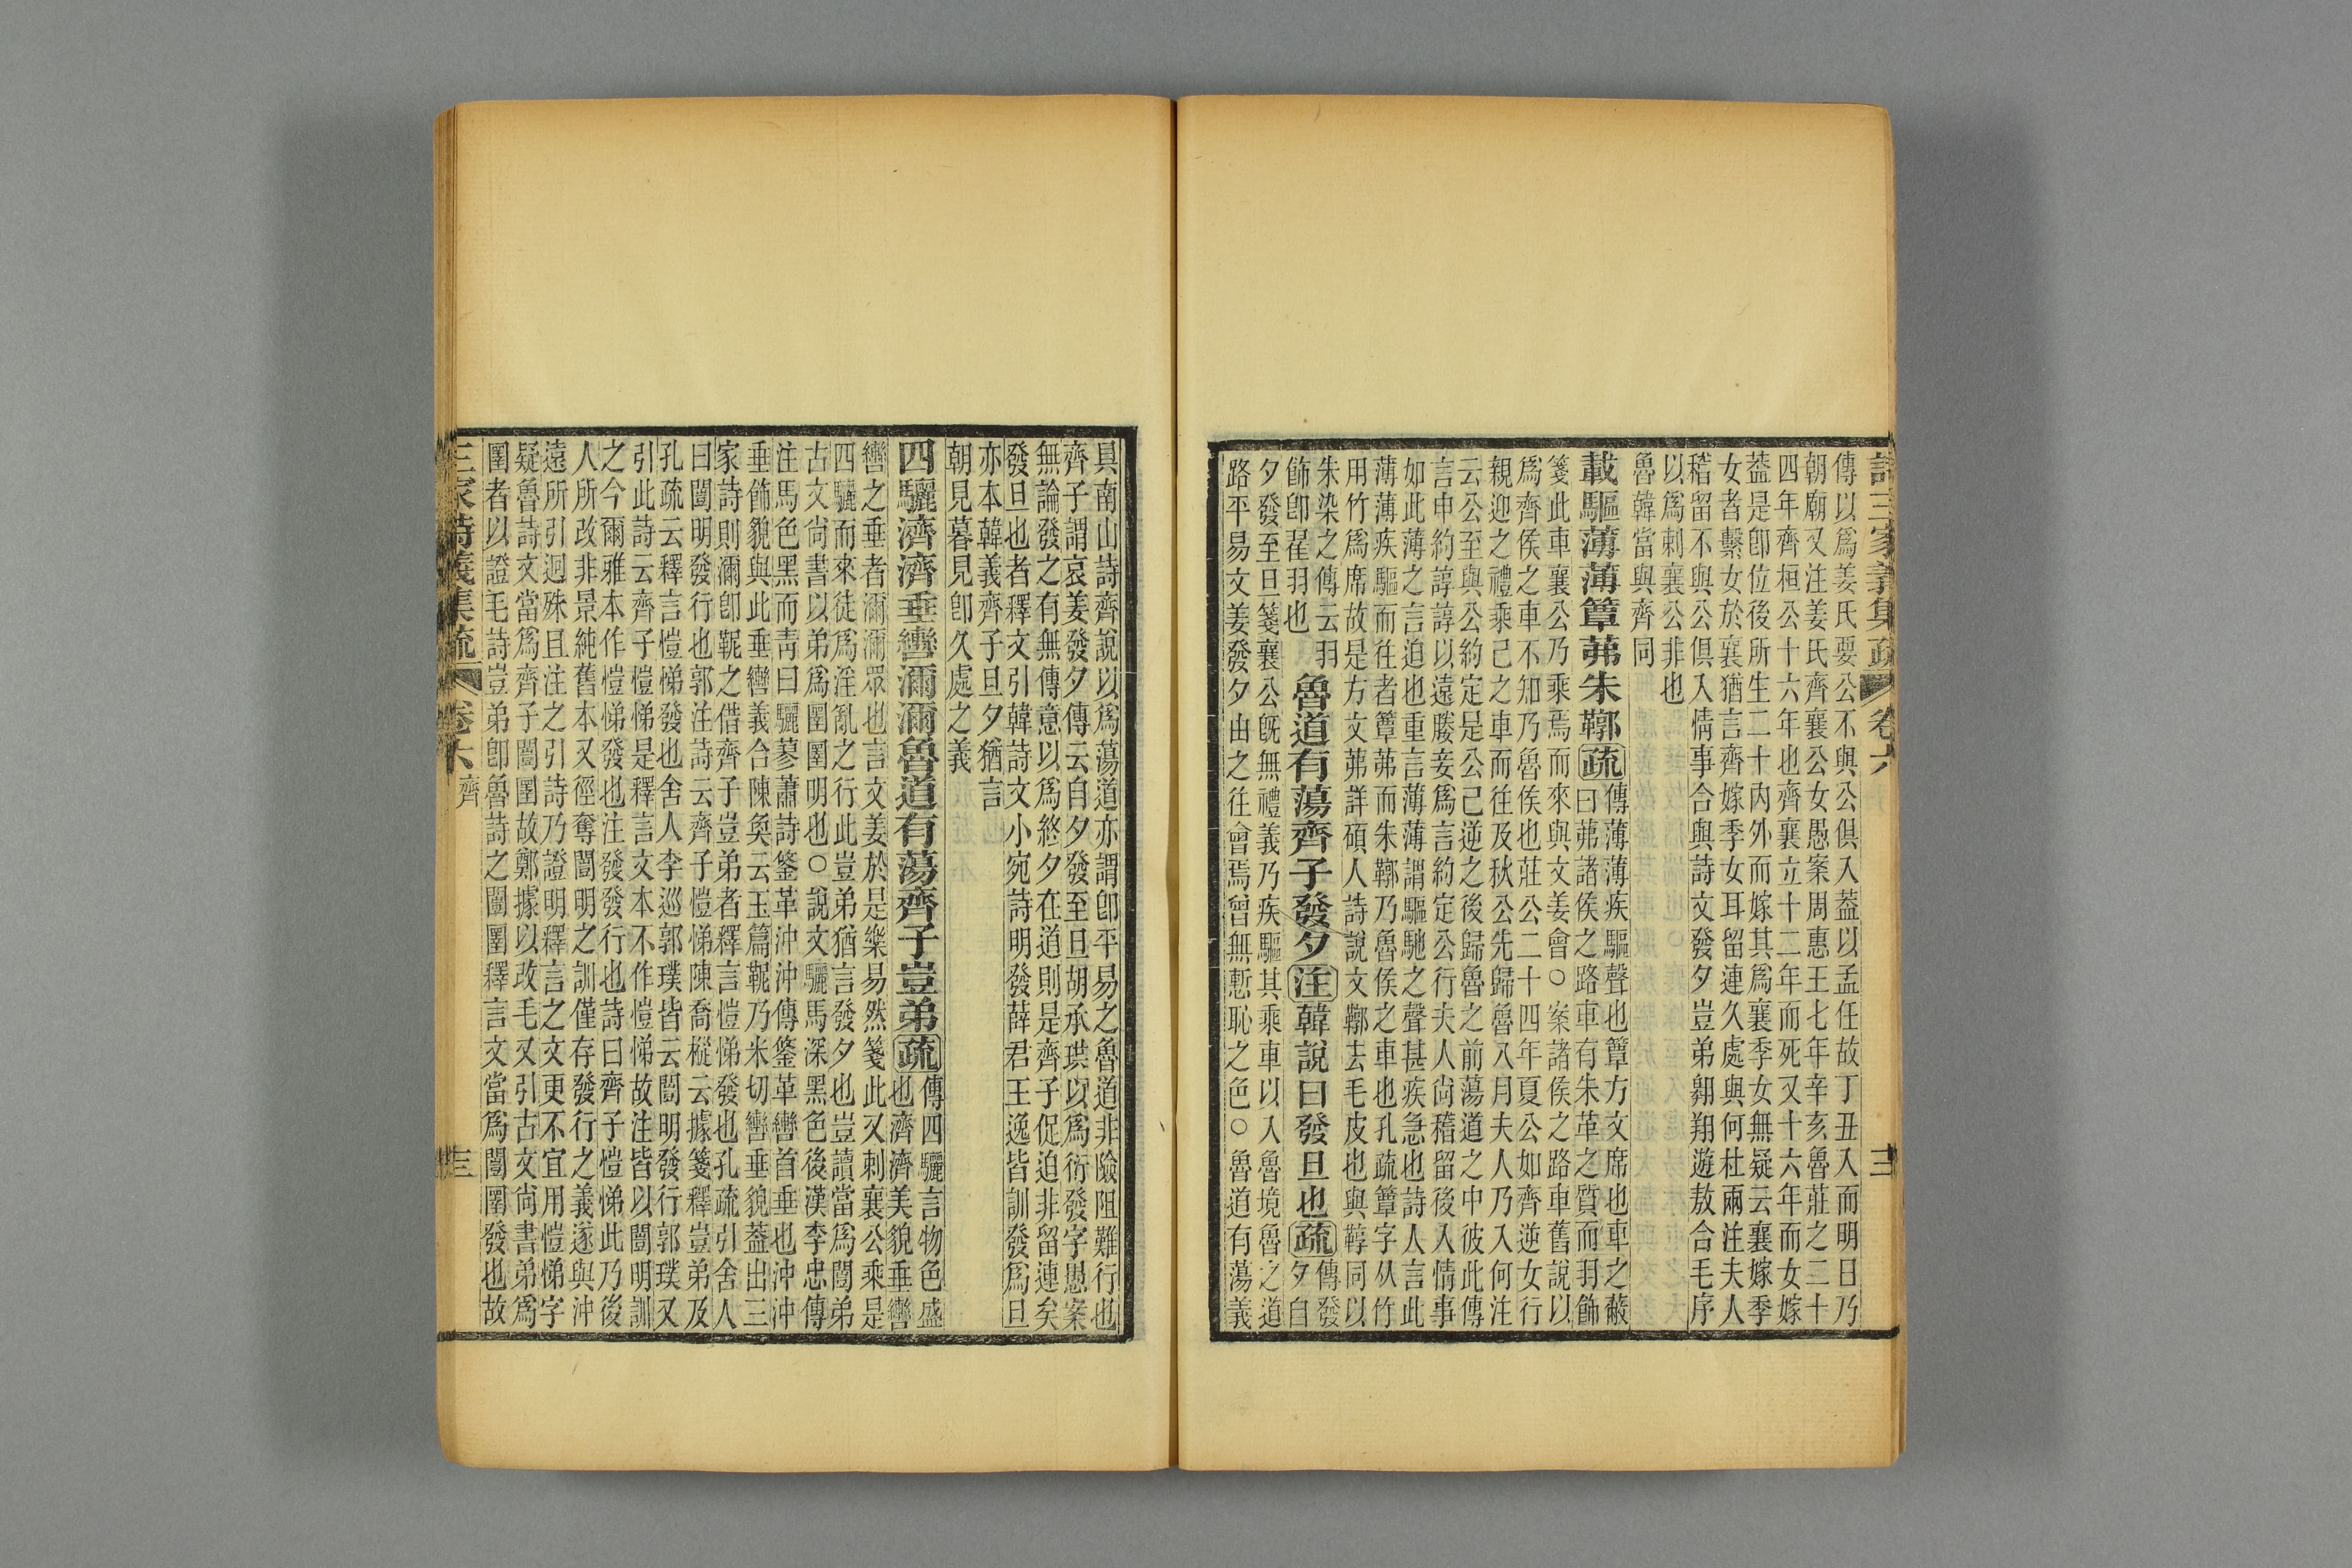 詩三家義集疏 卷六
傳以爲姜氏要公不與公俱入蓋以孟任故丁丑入而明日乃
朝廟又注姜氏齊襄公女愚案周惠王七年辛亥魯莊之二十
四年齊桓公十六年也齊襄立十二年而死又十六年而女嫁
蓋是卽位後所生二十內外而嫁其爲襄季女無疑云襄嫁季
女者繫女於襄猶言齊嫁季女耳留連久處與何杜兩注夫人
稽留不與公俱入情事合與詩文發夕豈弟翱翔遊敖合毛序
以爲刺襄公非也
魯韓當與齊同
載驅薄薄簟茀朱鞹疏傳薄薄疾驅聲也簟方文席也車之蔽
曰茀諸侯之路車有朱革之質而羽飾
箋此車襄公乃乘焉而來與文姜會○案諸侯之路車舊說以
爲齊侯之車不知乃魯侯也莊公二十四年夏公如齊逆女行
親迎之禮乘己之車而往及秋公先歸魯入月夫人乃入何注
云公至與公約定是公己逆之後歸魯之前蕩道之中彼此傳
言申約諄諄以遠媵妾爲言約定公行夫人尙稽留後入情事
如此薄之言迫也重言薄薄謂驅馳之聲甚疾急也詩人言此
薄薄疾驅而往者簟茀而朱鞹乃魯侯之車也孔疏簟字从竹
用竹爲席故是方文茀詳碩人詩說文鞹去毛皮也與鞟同以
朱染之傳云羽
飾卽翟羽也
魯道有蕩齊子發夕注韓說曰發旦也疏傳發
夕自
夕發至旦箋襄公旣無禮義乃疾驅其乘車以入魯境魯之道
路平易文姜發夕由之往會焉曾無慙恥之色○魯道有蕩義
具南山詩齊說以爲蕩道亦謂卽平易之魯道非險阻難行也
齊子謂哀姜發夕傳云自夕發至旦胡承珙以爲衍發字愚案
無論發之有無傳意以爲終夕在道則是齊子促迫非留連矣
發旦也者釋文引韓詩文小宛詩明發薛君王逸皆訓發爲旦
亦本韓義齊子旦夕猶言
朝見暮見卽久處之義
四驪濟濟垂轡濔濔魯道有蕩齊子豈弟疏傳四驪言物色盛
也濟濟美貌垂轡
轡之垂者濔濔眾也言文姜於是樂易然箋此又刺襄公乘是
四驪而來徒爲淫亂之行此豈弟猶言發夕也豈讀當爲闓弟
古文尙書以弟爲圛圛明也○說文驪馬深黑色後漢李忠傳
注馬色黑而靑曰驪蓼蕭詩鞗革沖沖傳鞗革轡首垂也沖沖
垂飾貌與此垂轡義合陳奐云玉篇鞎乃米切轡垂貌蓋出三
家詩則濔卽鞎之借齊子豈弟者釋言愷悌發也孔疏引舍人
曰闓明發行也郭注詩云齊子愷悌陳喬樅云據箋釋豈弟及
孔疏云釋言愷悌發也舍人李巡郭璞皆云闓明發行郭璞又
引此詩云齊子愷悌是釋言文本不作愷悌故注皆以闓明訓
之今爾雅本作愷悌發也注發發行也詩曰齊子愷悌此乃後
人所改非景純舊本又徑奪闓明之訓僅存發行之義遂與沖
遠所引迥殊且注之引詩乃證明釋言之文更不宜用愷悌字
疑魯詩文當爲齊子闓圛故鄭據以改毛又引古文尙書弟爲
圛者以證毛詩豈弟卽魯詩之闓圛釋言文當爲闓圛發也故
三家詩義集疏 卷六 齊